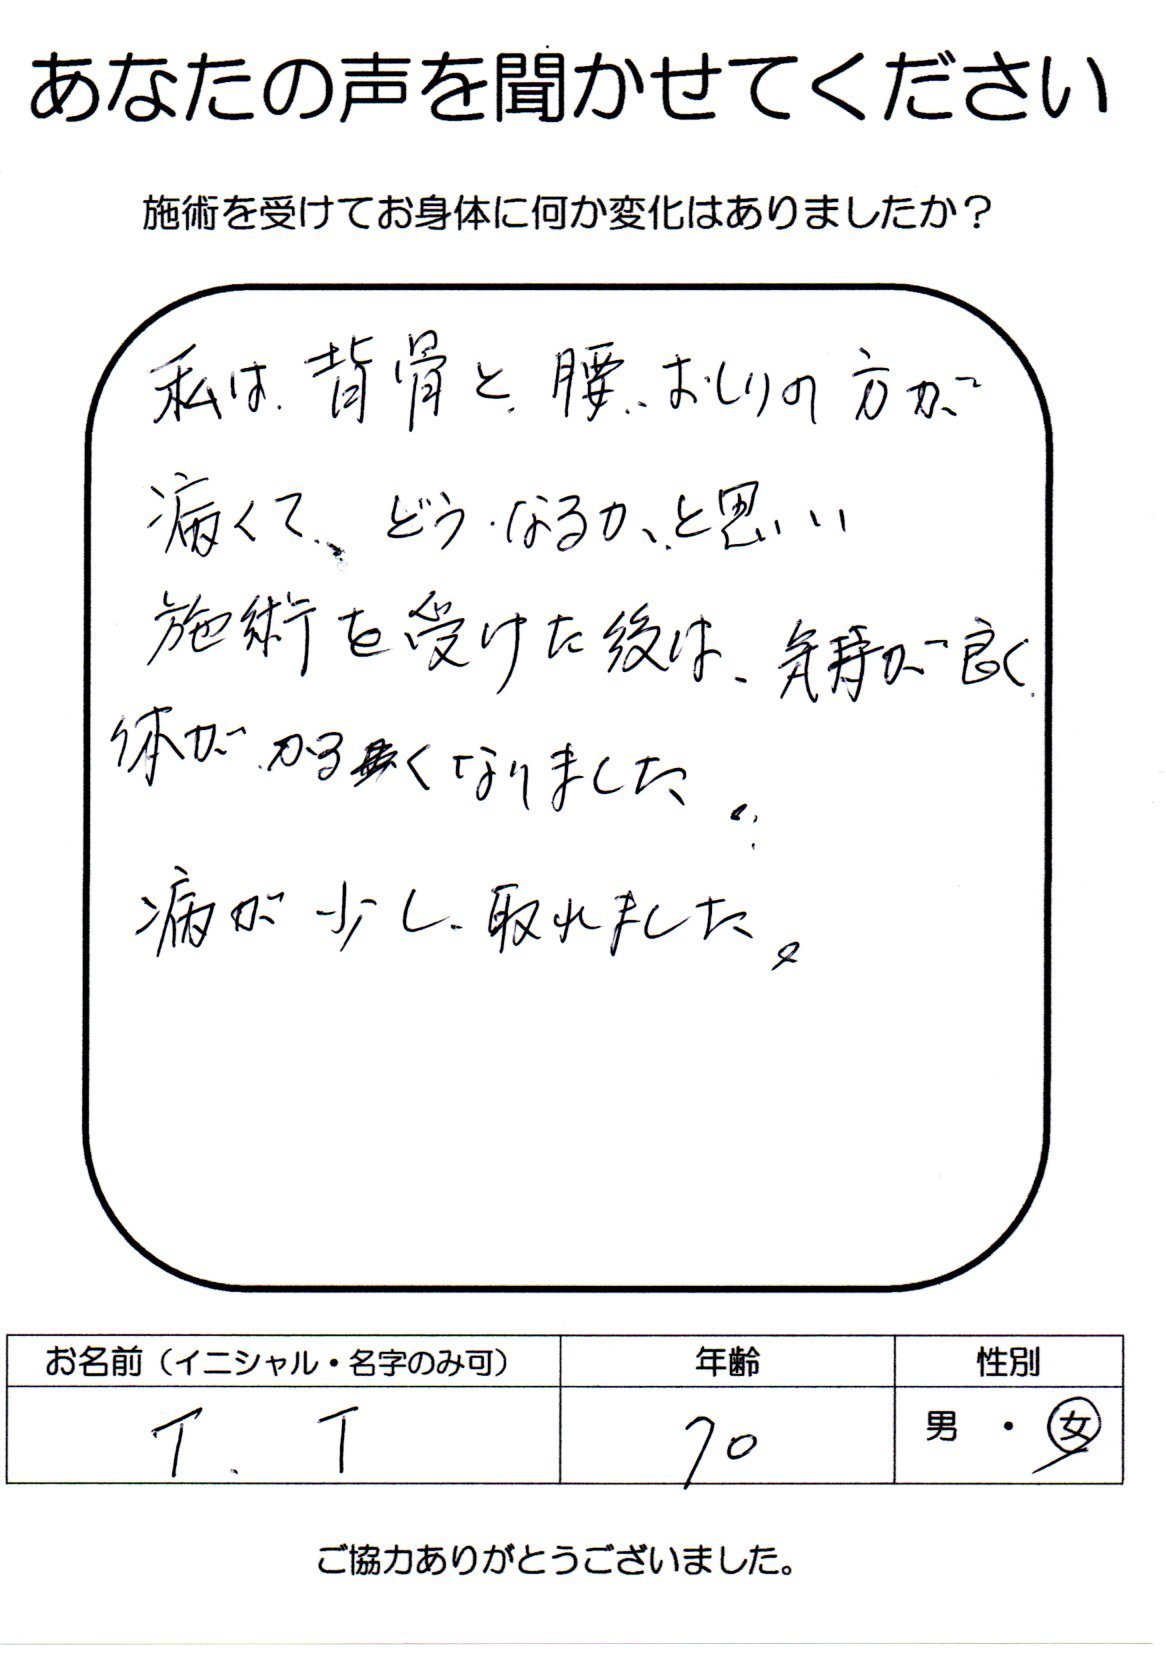 あなたの声を聞かせてください
施術を受けてお身体に何か変化はありましたか?
私は、背骨と、腰、おしりの方が
病くて、どうなるか、と思い
施術を受けた後は、気持が良く
体がかるくなりました。
病が少し取れました。
お名前(イニシャル・名字のみ可) 年齢 性別
T. T 70 男 ・ 女
ご協力ありがとうございました。